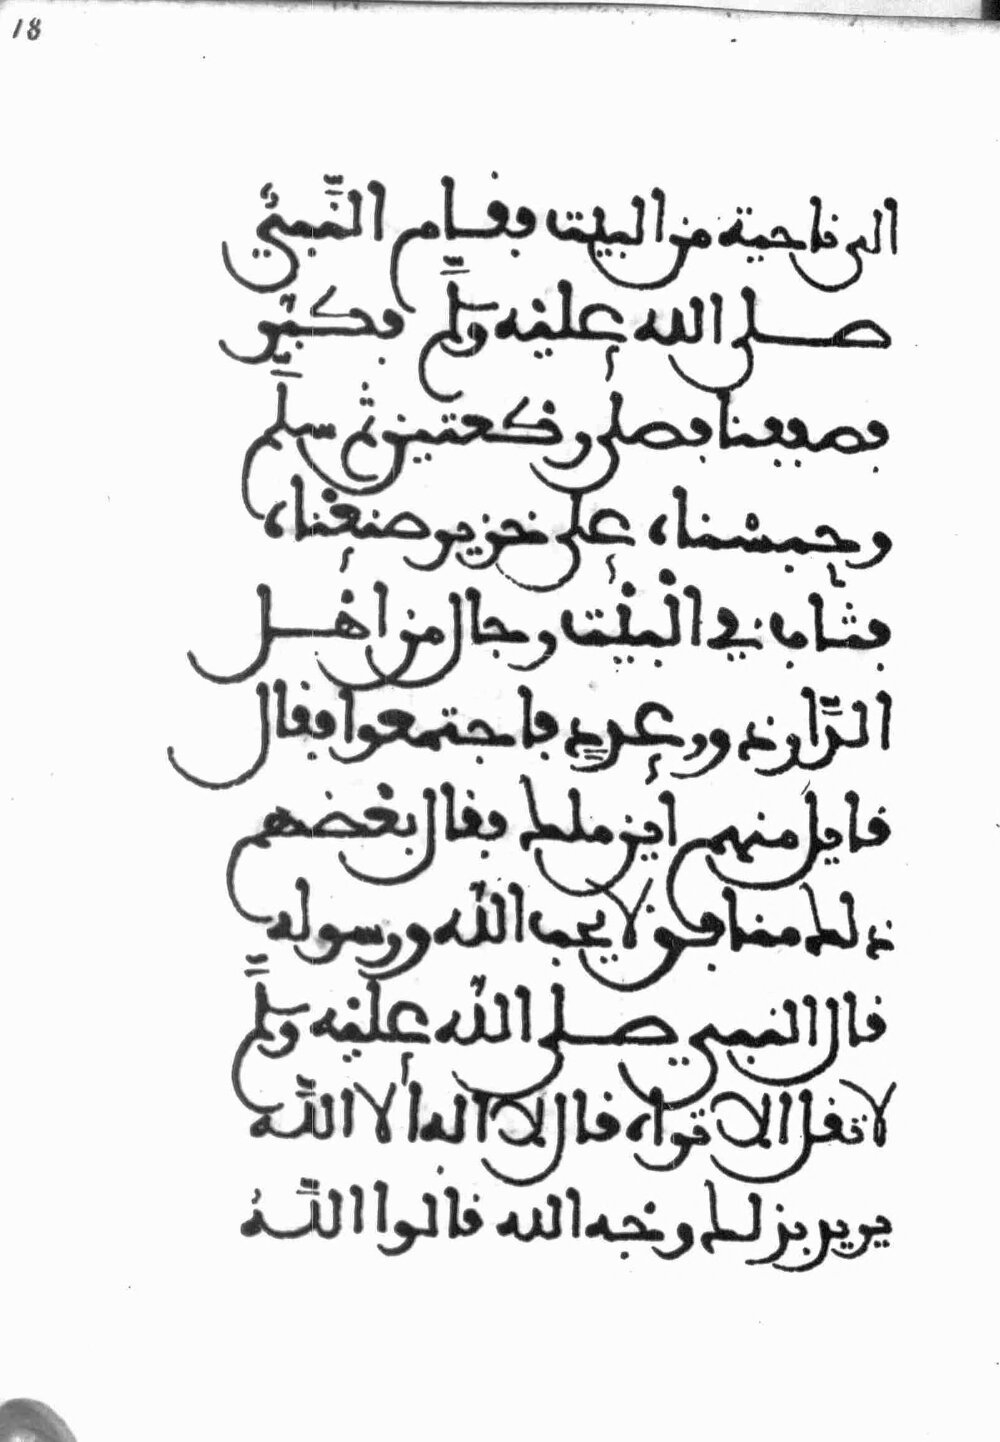 18
الى ناحية من البيت فقام النبيّ
صلى الله عليه وسلّم فكبّر
فصففنا فصلى ركعتين ثم سلّم
وحبسناه على خزير صنعناه
فثاب في البيت رجال من اهل
الدّار ذو وعدد فاجتمعوا فقال
قايل منهم اين ملك فقال بعضهم
ذلك منافق لا يحب الله ورسوله
قال النبي صلى الله عليه وسلّم
لا تقل الا تراه قال لا اله الا الله
يريد بذلك وجه الله قالوا اللّه